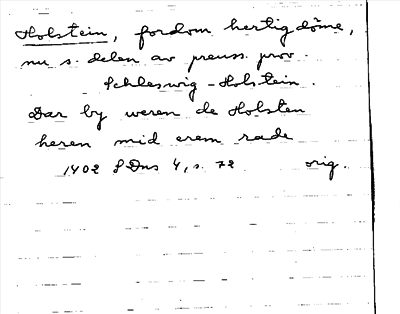 Holstein, fordom hertigdöme,
nu s. delen av preuss. prov.
Schleswig-Holstein.
Dar by weren de Holsten
heren mid erem rade
1402 SDns 4, s. 72 orig.